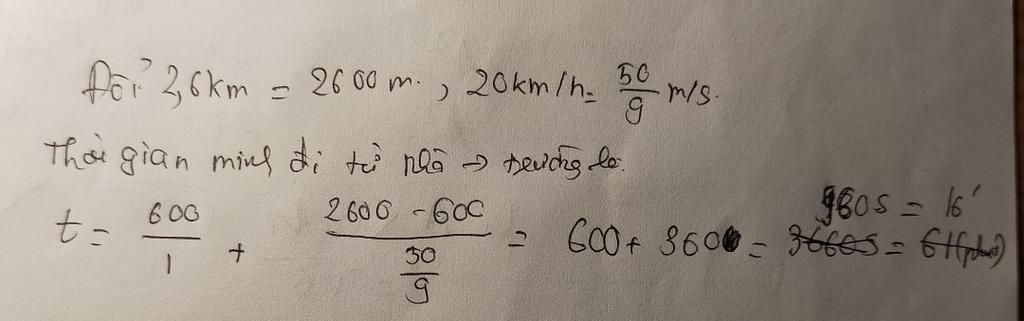 Đổi 2,6km = 2600 m. , 20km/h = 50/9 m/s.
Thời gian minh đi từ nhà → trường là.
t = 600/1 + (2600 - 600)/(50/9) = 600 + 360 = 3660s = 61(phút)
960s = 16'